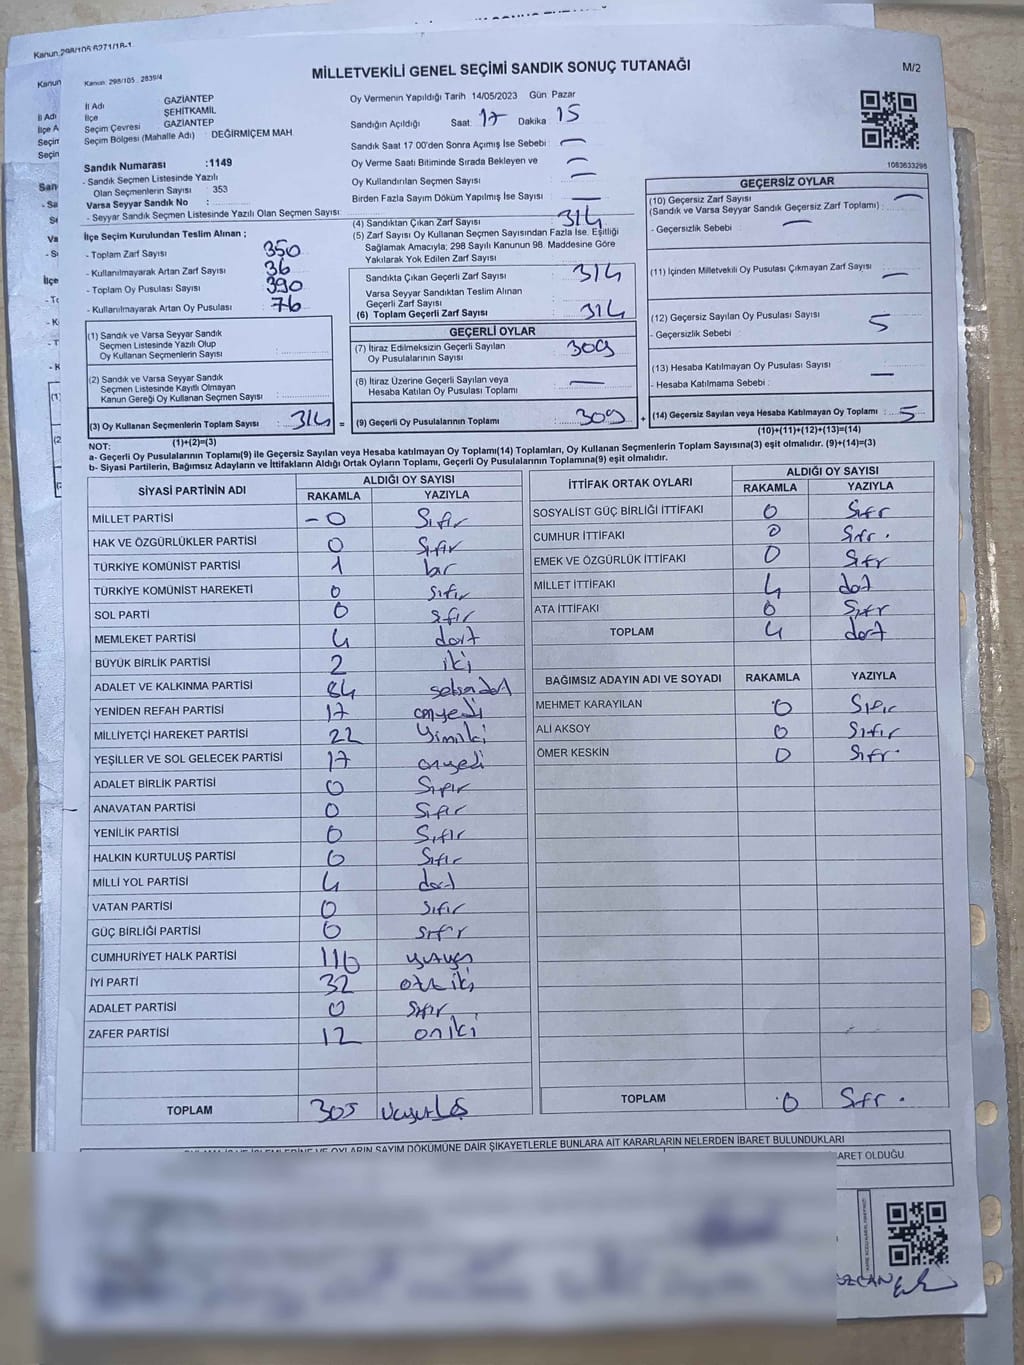 Kanun.298/105 6271/18-1
Kanun. 298/105 . 2839/4
MİLLETVEKİLİ GENEL SEÇİMİ SANDIK SONUÇ TUTANAĞI
M/2
İl Adı GAZİANTEP
İlçe ŞEHİTKAMİL
Seçim Çevresi GAZİANTEP
Seçim Bölgesi (Mahalle Adı) : DEĞİRMİÇEM MAH
Sandık Numarası :1149
- Sandık Seçmen Listesinde Yazılı
Olan Seçmenlerin Sayısı : 353
Varsa Seyyar Sandık No :
- Seyyar Sandık Seçmen Listesinde Yazılı Olan Seçmen Sayısı:
İlçe Seçim Kurulundan Teslim Alınan ;
- Toplam Zarf Sayısı : 350
- Kullanılmayarak Artan Zarf Sayısı : 36
- Toplam Oy Pusulası Sayısı : 390
- Kullanılmayarak Artan Oy Pusulası : 76
(1) Sandık ve Varsa Seyyar Sandık
Seçmen Listesinde Yazılı Olup
Oy Kullanan Seçmenlerin Sayısı :
(2) Sandık ve Varsa Seyyar Sandık
Seçmen Listesinde Kayıtlı Olmayan
Kanun Gereği Oy Kullanan Seçmen Sayısı :
(3) Oy Kullanan Seçmenlerin Toplam Sayısı : 314 =
Oy Vermenin Yapıldığı Tarih 14/05/2023 Gün Pazar
Sandığın Açıldığı Saat: 17 Dakika 15
Sandık Saat 17 00'den Sonra Açımış İse Sebebi : —
Oy Verme Saati Bitiminde Sırada Bekleyen ve —
Oy Kullandırılan Seçmen Sayısı : —
Birden Fazla Sayım Döküm Yapılmış İse Sayısı : —
(4) Sandıktan Çıkan Zarf Sayısı : 314
(5) Zarf Sayısı Oy Kullanan Seçmen Sayısından Fazla İse. Eşitliği
Sağlamak Amacıyla; 298 Sayılı Kanunun 98. Maddesine Göre
Yakılarak Yok Edilen Zarf Sayısı :
Sandıkta Çıkan Geçerli Zarf Sayısı : 314
Varsa Seyyar Sandıktan Teslim Alınan
Geçerli Zarf Sayısı :
(6) Toplam Geçerli Zarf Sayısı : 314
GEÇERLİ OYLAR
(7) İtiraz Edilmeksizin Geçerli Sayılan : 309
Oy Pusulalarının Sayısı
(8) İtiraz Üzerine Geçerli Sayılan veya : —
Hesaba Katılan Oy Pusulası Toplamı
(9) Geçerli Oy Pusulalarının Toplamı : 309 +
1083633296
GEÇERSİZ OYLAR
(10) Geçersiz Zarf Sayısı : —
(Sandık ve Varsa Seyyar Sandık Geçersiz Zarf Toplamı) :
- Geçersizlik Sebebi : —
(11) İçinden Milletvekili Oy Pusulası Çıkmayan Zarf Sayısı : —
(12) Geçersiz Sayılan Oy Pusulası Sayısı : 5
- Geçersizlik Sebebi :
(13) Hesaba Katılmayan Oy Pusulası Sayısı : —
- Hesaba Katılmama Sebebi :
(14) Geçersiz Sayılan veya Hesaba Katılmayan Oy Toplamı : 5
(1)+(2)=(3)
(10)+(11)+(12)+(13)=(14)
NOT:
a- Geçerli Oy Pusulalarının Toplamı(9) ile Geçersiz Sayılan veya Hesaba katılmayan Oy Toplamı(14) Toplamları, Oy Kullanan Seçmenlerin Toplam Sayısına(3) eşit olmalıdır. (9)+(14)=(3)
b- Siyasi Partilerin, Bağımsız Adayların ve İttifakların Aldığı Ortak Oyların Toplamı, Geçerli Oy Pusulalarının Toplamına(9) eşit olmalıdır.
SİYASİ PARTİNİN ADI ALDIĞI OY SAYISI
RAKAMLA YAZIYLA
MİLLET PARTİSİ - 0 Sıfır
HAK VE ÖZGÜRLÜKLER PARTİSİ 0 Sıfır
TÜRKİYE KOMÜNİST PARTİSİ 1 bir
TÜRKİYE KOMÜNİST HAREKETİ 0 Sıfır
SOL PARTİ 0 sfır
MEMLEKET PARTİSİ 4 dört
BÜYÜK BİRLİK PARTİSİ 2 iki
ADALET VE KALKINMA PARTİSİ 84 seksendört
YENİDEN REFAH PARTİSİ 17 onyedi
MİLLİYETÇİ HAREKET PARTİSİ 22 Yirmiiki
YEŞİLLER VE SOL GELECEK PARTİSİ 17 onyedi
ADALET BİRLİK PARTİSİ 0 Sıfır
ANAVATAN PARTİSİ 0 Sıfır
YENİLİK PARTİSİ 0 Sıfır
HALKIN KURTULUŞ PARTİSİ 0 Sıfır
MİLLİ YOL PARTİSİ 4 dört
VATAN PARTİSİ 0 Sıfır
GÜÇ BİRLİĞİ PARTİSİ 0 sıfır
CUMHURİYET HALK PARTİSİ 110
İYİ PARTİ 32 otuziki
ADALET PARTİSİ 0 sıfır
ZAFER PARTİSİ 12 oniki
TOPLAM 305 üçyüzbeş
İTTİFAK ORTAK OYLARI ALDIĞI OY SAYISI
RAKAMLA YAZIYLA
SOSYALİST GÜÇ BİRLİĞİ İTTİFAKI 0 Sıfır
CUMHUR İTTİFAKI 0 Sıfır.
EMEK VE ÖZGÜRLÜK İTTİFAKI 0 Sıfır
MİLLET İTTİFAKI 4 dört
ATA İTTİFAKI 0 Sıfır
TOPLAM 4 dört
BAĞIMSIZ ADAYIN ADI VE SOYADI RAKAMLA YAZIYLA
MEHMET KARAYILAN 0 Sıfır
ALİ AKSOY 0 Sıfır
ÖMER KESKİN 0 Sıfır.
TOPLAM 0 Sıfır.
OYLARIN SAYIM DÖKÜMÜNE DAİR ŞİKAYETLERLE BUNLARA AİT KARARLARIN NELERDEN İBARET BULUNDUKLARI
ARET OLDUĞU